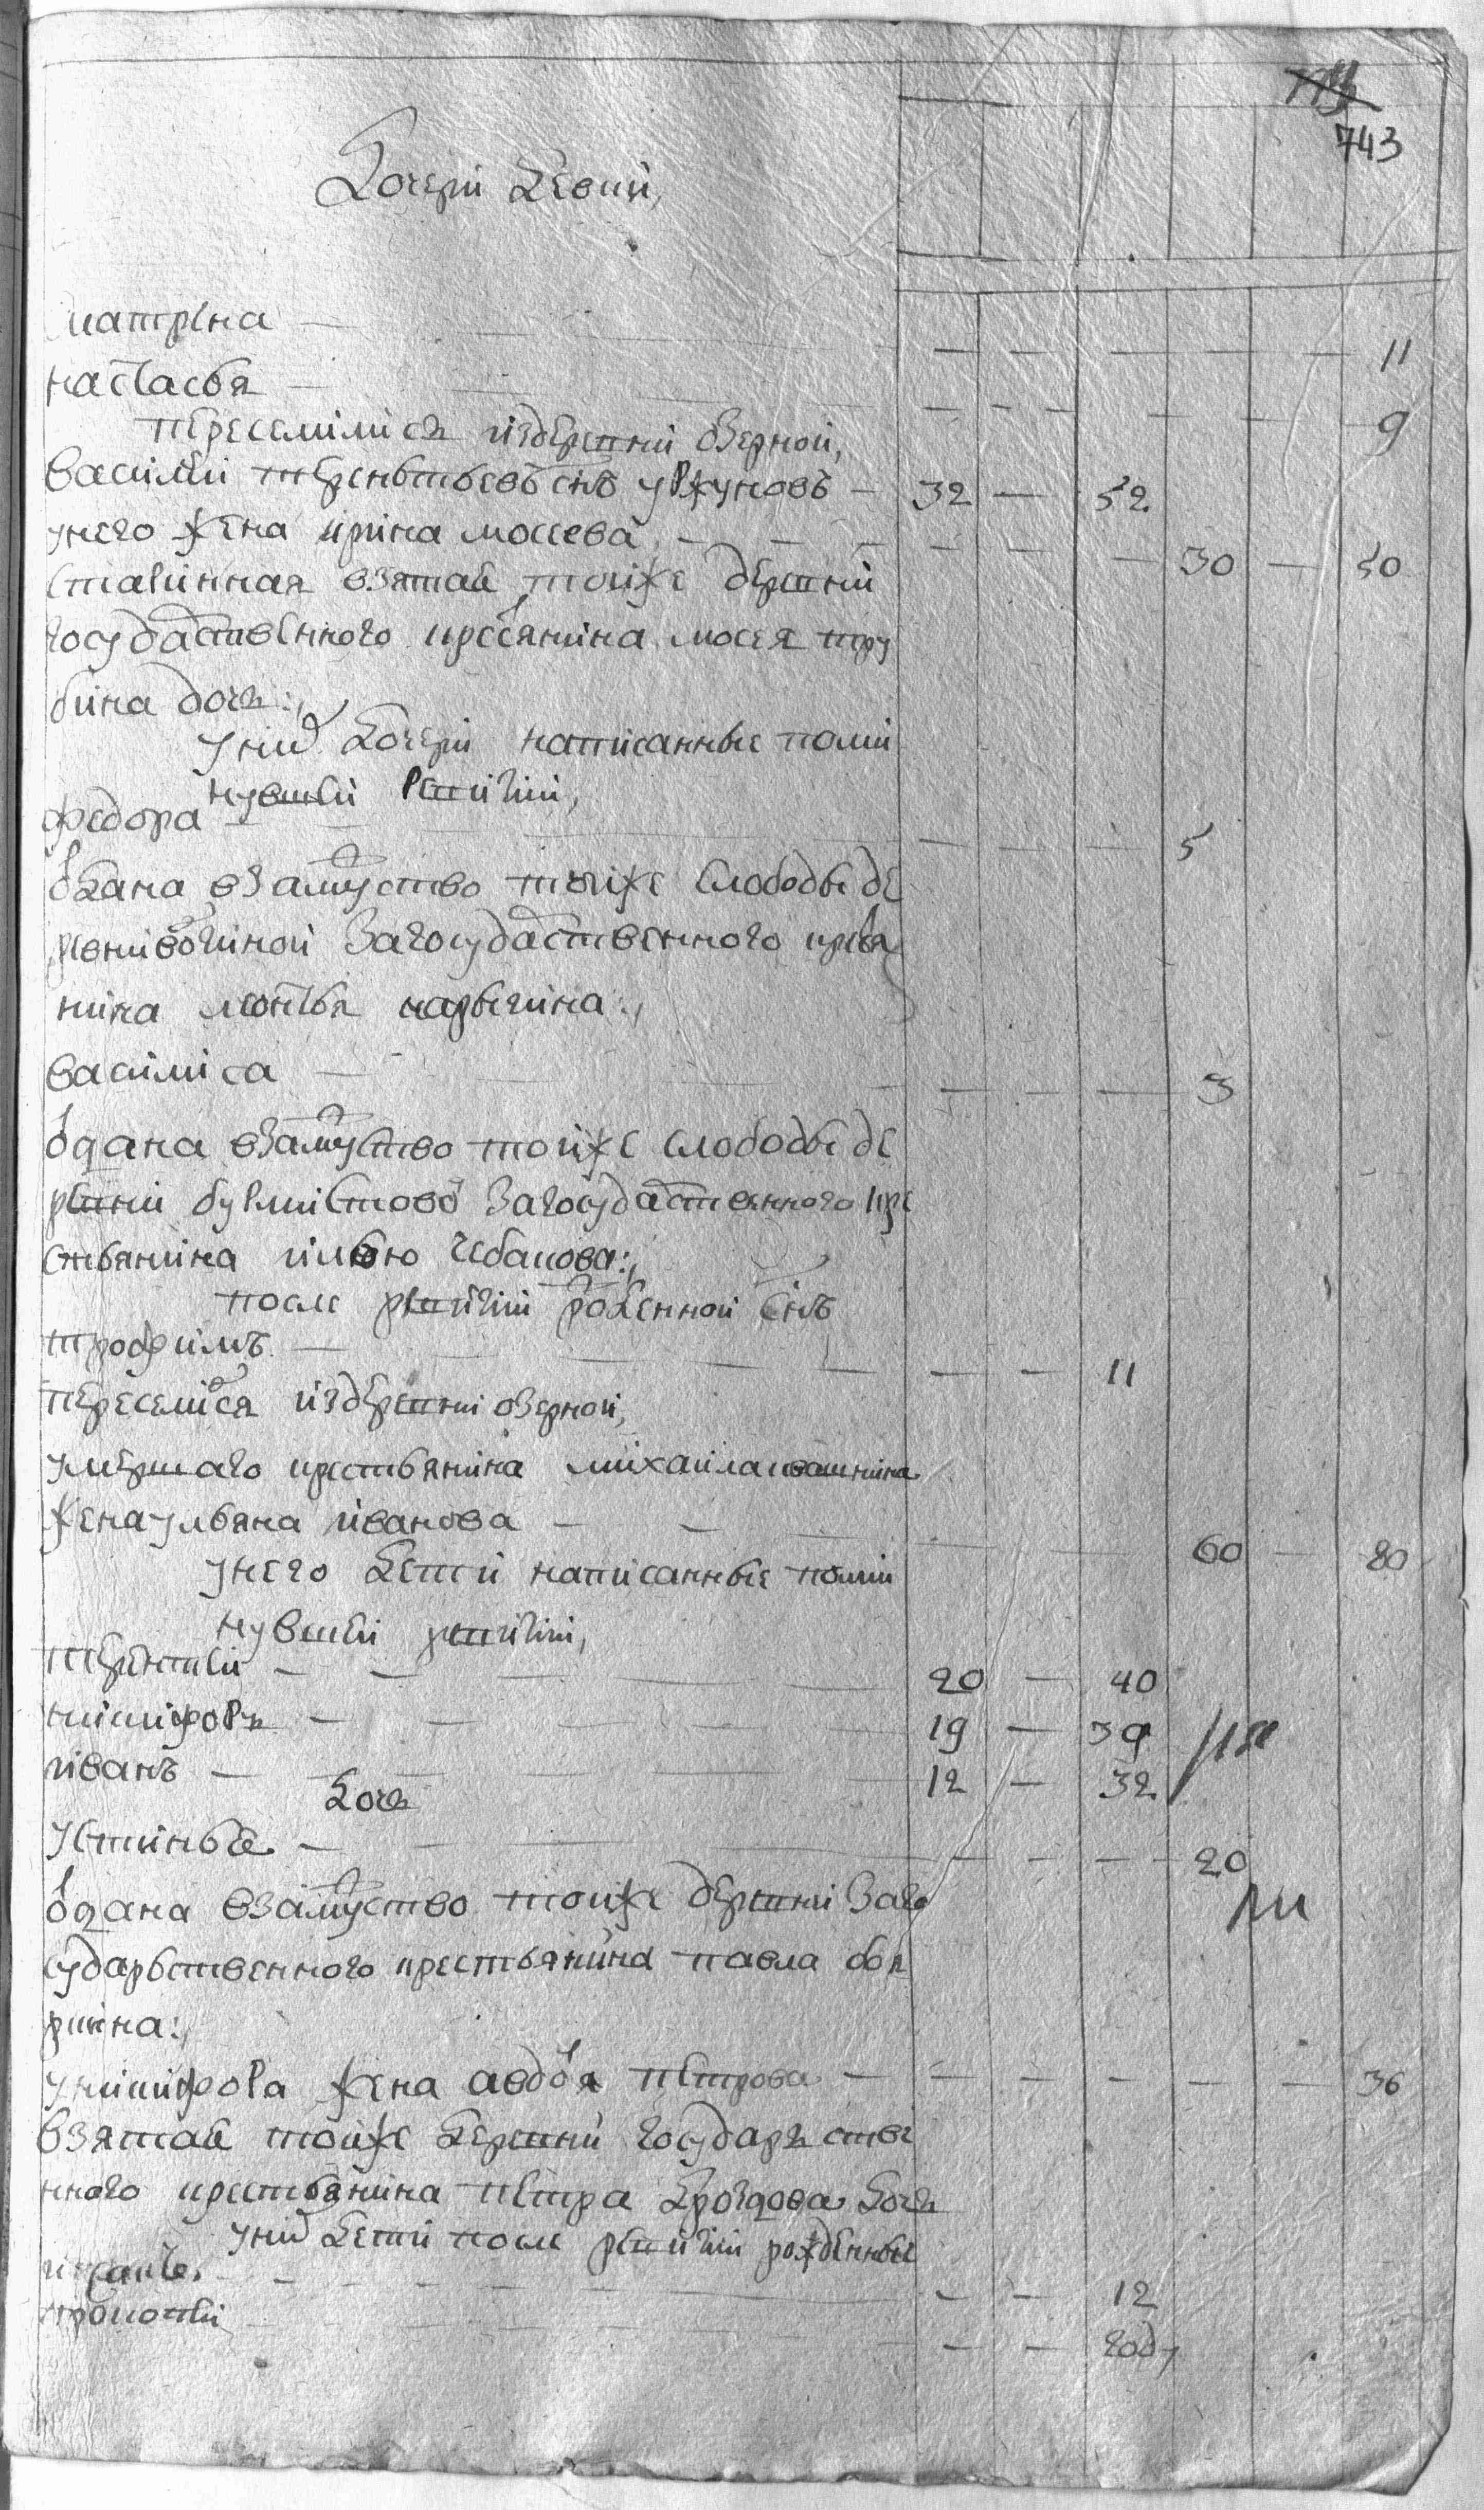 743
Дочери девки,
матрена — — — — — 11
настасья — — — — — 9
переселились издеревни озерной,
василей терентьевъ снъ уржуновъ — 32 — 52
унего жена ирина мосеева — — — 30 — 50
старинная взятая тойже деревни
государственного крестянина мосея тру
бина дочь:,
уних дочери написанные помы
нувшей ревизии,
федора — — — — 5
отдана взамужство тойже слободы де
ревни заго­сударственного кресьтя
нина
василиса — — — — 3
отдана взамужство тойже слободы де
ревни загосударственного кре
стьянина илью чебакова:,
после ревизии рожденной снъ
трофимъ — — — 11
переселился издеревни озерной,
умершаго крестьянина михаила
жена ульяна иванова — — — 60 — 80
унего дети написанные помы
нувшей ревизии,
терентей — — 20 — 40
никифоръ — — 19 — 39
иванъ — — 12 — 32
дочь
устинья — — — — 20
отдана взамужство тойже деревни заго
сударьственного крестьянина павла обя
рина:,
уникифора жена авдотья петрова — — — — — 36
взятая тойже деревни государьстве
нного крестьянина петра дроздова дочь
уних дети после ревизии рожденные
— — — 12
прокопей — — — году